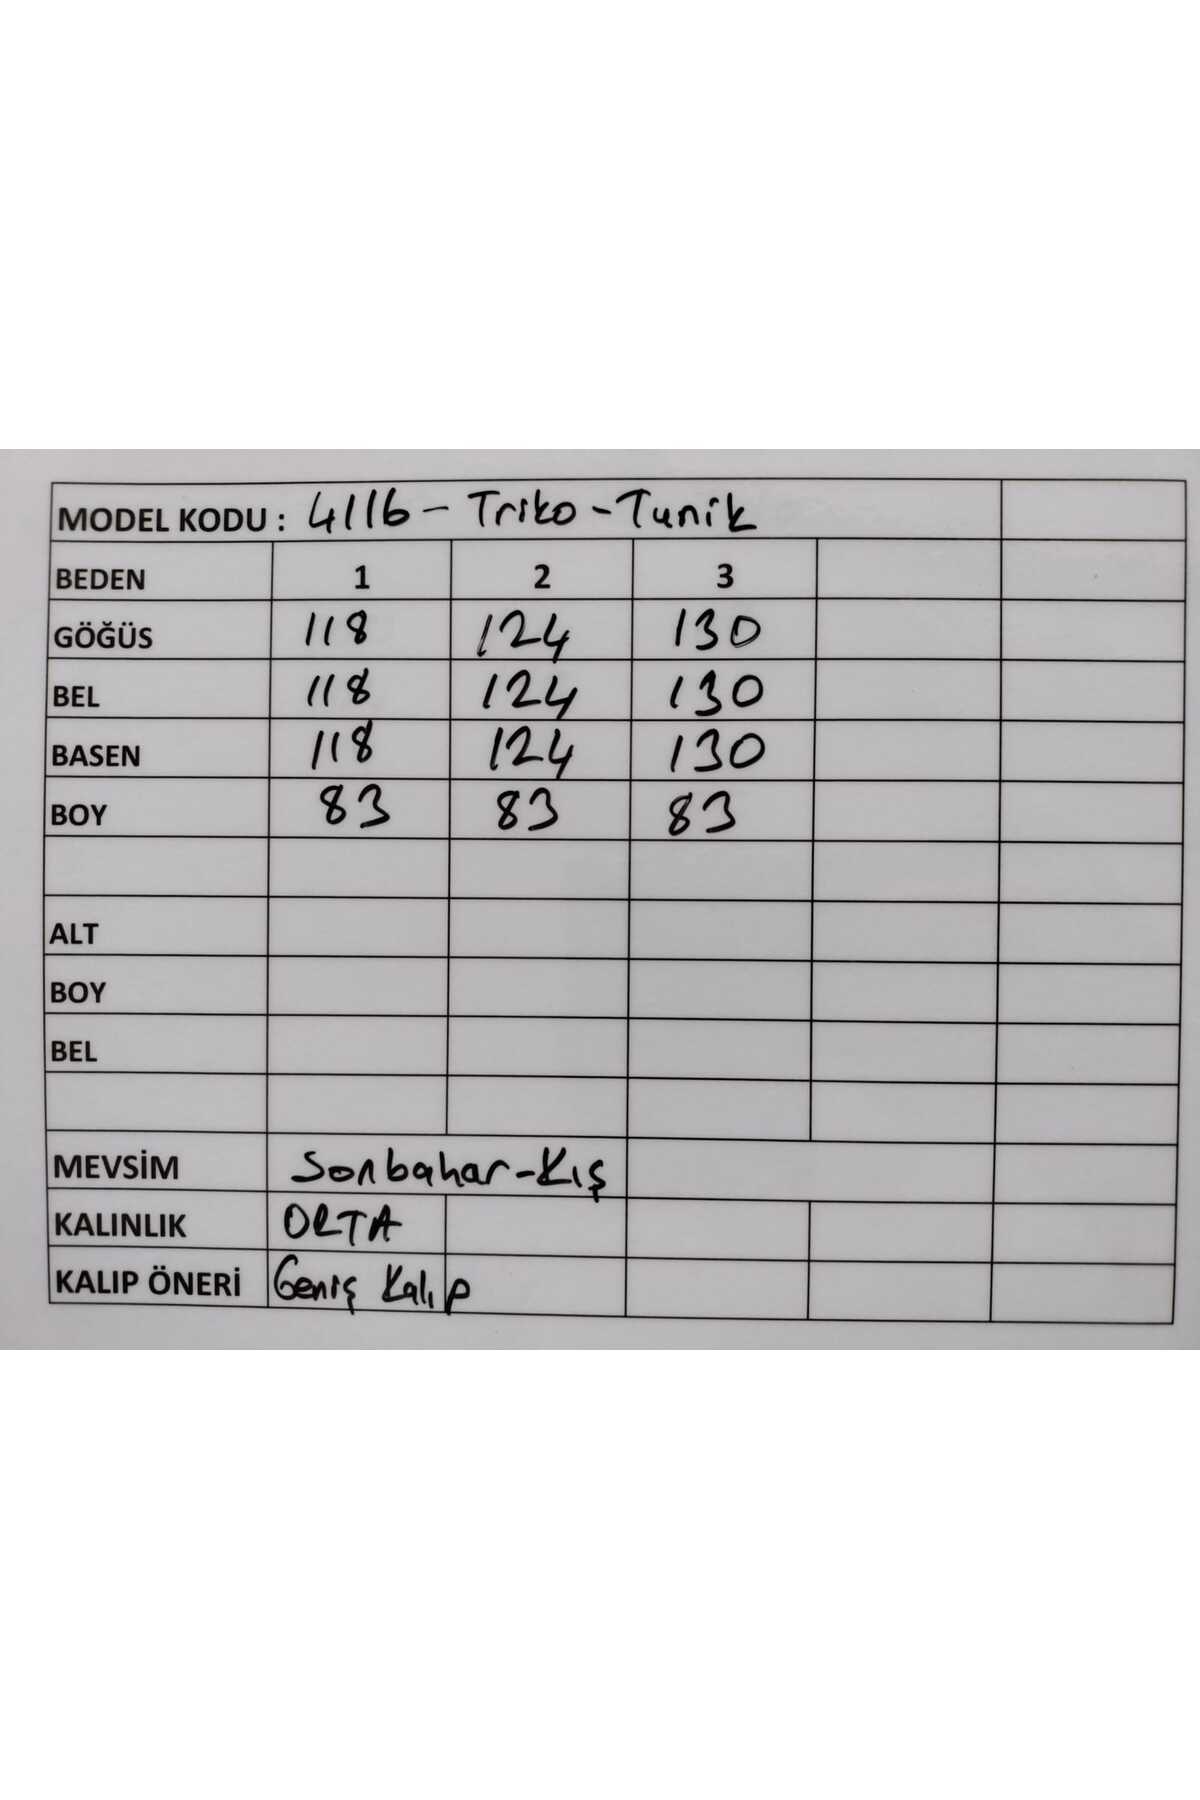 MODEL KODU : 4116 - Triko - Tunik
BEDEN 1 2 3
GÖĞÜS 118 124 130
BEL 118 124 130
BASEN 118 124 130
BOY 83 83 83
ALT
BOY
BEL
MEVSİM Sonbahar-Kış
KALINLIK ORTA
KALIP ÖNERİ Geniş Kalıp